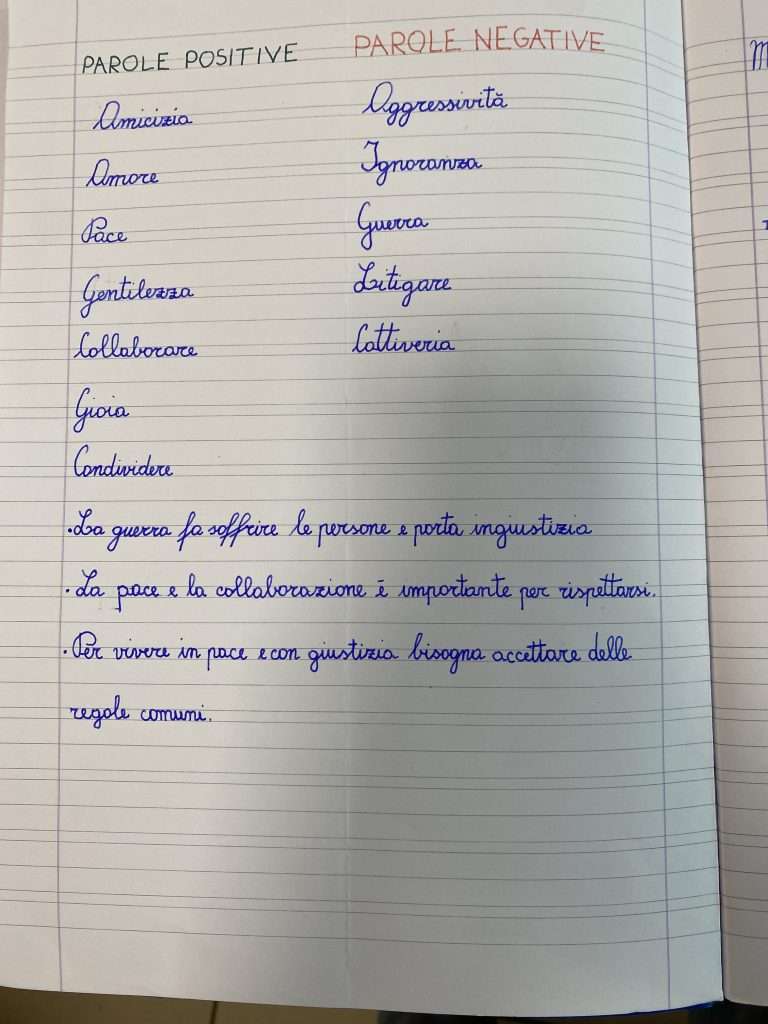 PAROLE POSITIVE PAROLE NEGATIVE
Amicizia Aggressività
Amore Ignoranza
Pace Guerra
Gentilezza Litigare
Collaborare Cattiveria
Gioia
Condividere
•La guerra fa soffrire le persone e porta ingiustizia
•La pace e la collaborazione è importante per rispettarsi.
•Per vivere in pace e con giustizia bisogna accettare delle
regole comuni.